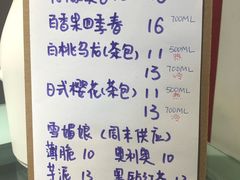 百香果四季春 16 700ML
白桃乌龙(茶包) 11 500ML
13 700ML
日式樱花(茶包) 11 500ML
13 700ML
雪媚娘(周末供应)
薄脆 10 奥利奥 10
芋泥 13